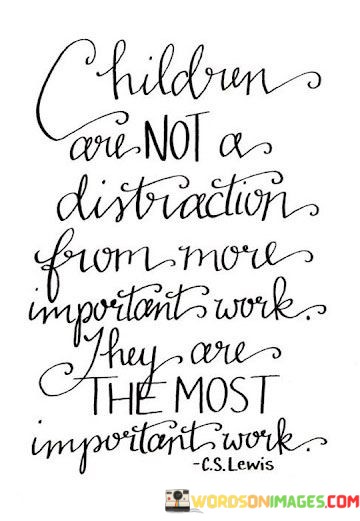 Children
are NOT a
distraction
from more
important work.
They are
THE MOST
important work.
-C.S. Lewis
WORDSONIMAGES.COM